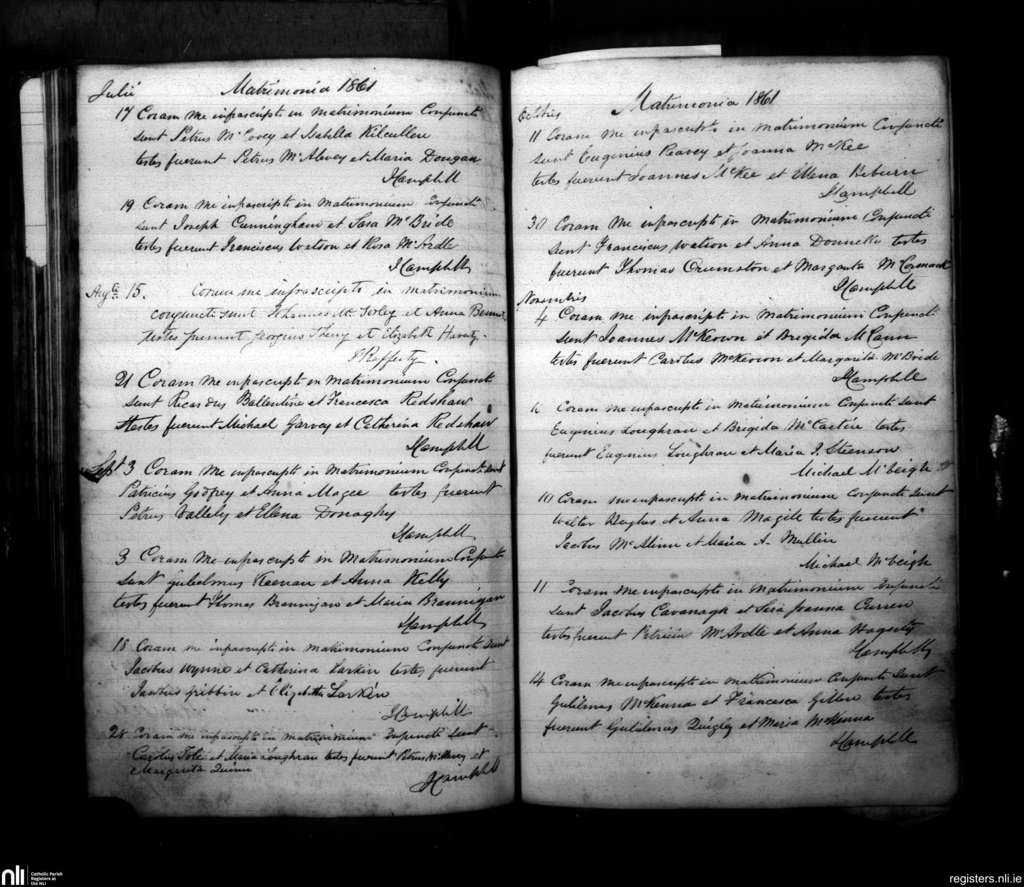 Julii Matrimonia 1861
17 Coram me infrascripto in Matrimonium Conjuncti
sunt Petrus et Isabella Kilcullere
testes fuerunt Petrus McAlevey et Maria Dougan
JCampbell
19 Coram me infrascripto in Matrimonium Conjuncti
sunt Joseph Cunningham et Sara McBride
testes fuerunt Franciscus Watson et Rosa McArdle
JCampbell
15. Coram me infrascripto in matrimonium
conjuncti sunt Johannes et Anna
testes fuerunt Georgius et Elizabeth
P Rafferty.
21 Coram me infrascripto in Matrimonium Conjuncti
sunt Ricardus Ballentine et Francesca Redshaw
testes fuerunt Michael Garvey et Catherina Redshaw
JCampbell
Sept 3 Coram me infrascripto in Matrimonium Conjuncti sunt
Patricius Godfrey et Anna Magee testes fuerunt
Petrus Vallely et Ellena Donaghy
JCampbell
3 Coram me infrascripto in Matrimonium Conjuncti
sunt Gulielmus Keenan et Anna Kelly
testes fuerunt Thomas Brannigan et Maria Brannigan
JCampbell
18 Coram me infrascripto in matrimonium Conjuncti sunt
Jacobus Wynne et Catherina Larkin testes fuerunt
Jacobus Gribbin et Elizabetha Larkin
JCampbell
28 Coram me infrascripto in matrimonium Conjuncti sunt
Carolus Tole et Maria Loughran testes fuerunt Petrus et
Margarita Quinn
JCampbell
Octobris Matrimonia 1861
11 Coram me infrascripto in matrimonium Conjuncti
sunt Eugenius Peavey et Joanna McKee
testes fuerunt Joannes McKee et Ellena
JCampbell
30 Coram me infrascripto in Matrimonium Conjuncti
sunt Franciscus Watson et Anna Donnelly testes
fuerunt Thomas Crumston et Margarita McCormack
JCampbell
Novembris
4 Coram me infrascripto in Matrimonium Conjuncti
sunt Joannes McKeown et Brigida McCann
testes fuerunt Carolus McKeown et Margarita McBride
JCampbell
6 Coram me infrascripto in Matrimonium Conjuncti sunt
Eugenius Loughran et Brigida McCartin testes
fuerunt Eugenius Loughran et Maria J. Steenson
Michael McVeigh
10 Coram me infrascripto in matrimonium Conjuncti sunt
Walter et Anna Magill testes fuerunt
Jacobus McAlinn et Maria A. Mullin
Michael McVeigh
11 Coram me infrascripto in matrimonium Conjuncti
sunt Jacobus Cavanagh et Joanna Curren
testes fuerunt Patricius McArdle et Anna Hagerty
JCampbell
14 Coram me infrascripto in matrimonium Conjuncti sunt
Gulielmus McKenna et Francesca Gillen testes
fuerunt Gulielmus Quigley et Maria McKenna
JCampbell
nli Catholic Parish
Registers at
the NLI
registers.nli.ie